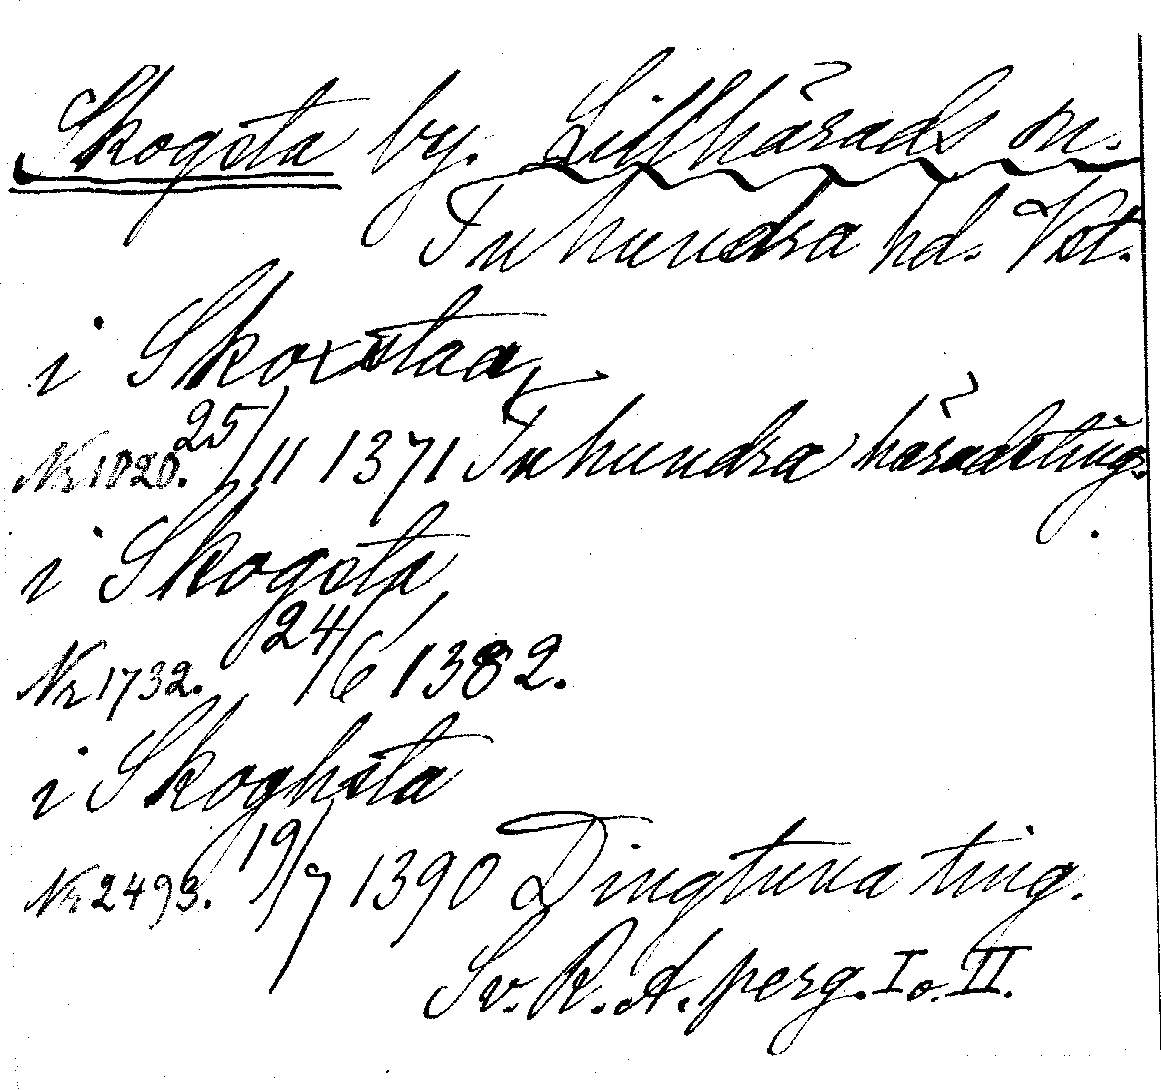 Skogsta by. Lillhärads sn.
Tuhundra hd. Vstm.
i Skoxstaa,
Nr 1020. 25/11 1371 Tuhundra häradsting.
i Skogsta
Nr 1732. 24/6 1382.
i Skoghsta
Nr 2493. 19/7 1390 Dingtuna ting.
Sv. R. A. perg. I o. II.